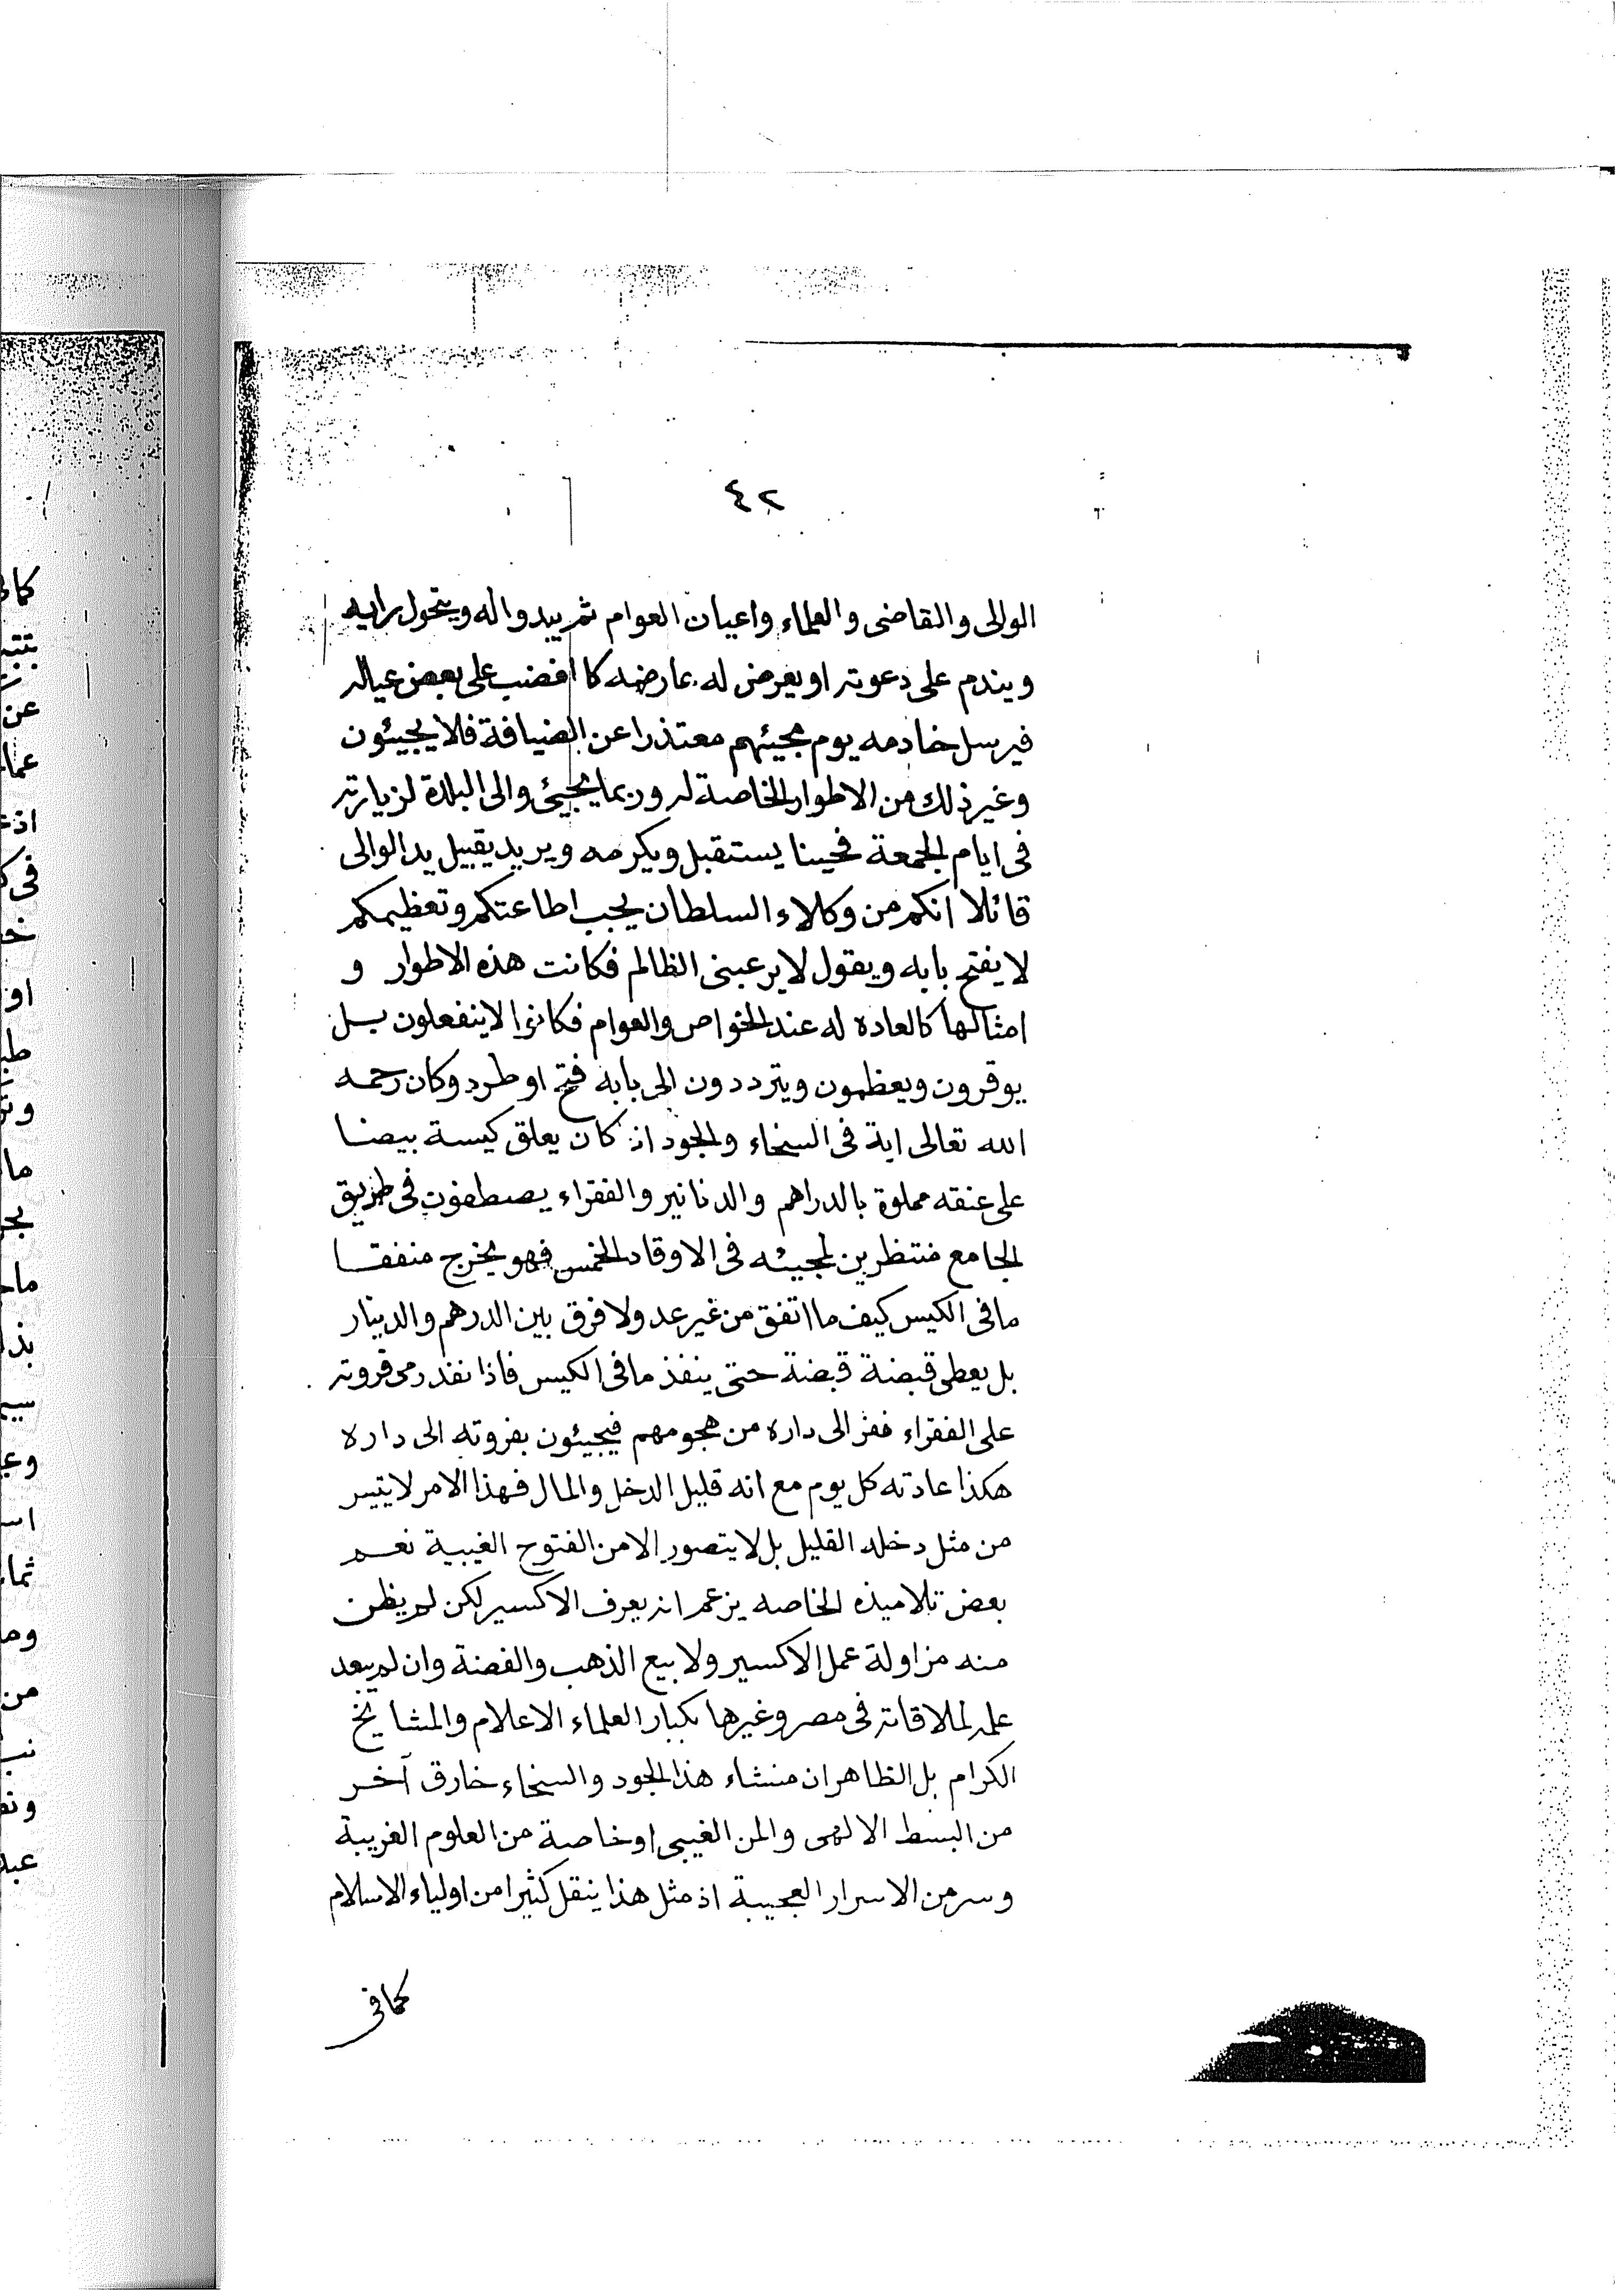 ٤٢
الوالى والقاضى والعلماء واعيان العوام ثم يبدو اله ويتحول برايه
ويندم على دعوته او يعرض له عارضه كا لغضب على بعض عياله
فيرسل خادمه يوم مجيئهم معتذرا عن الضيافة فلا يجيئون
وغير ذلك من الاطوار الخاصة له وربما يجيئ والى البلدة لزيارته
فى ايام الجمعة فحينا يستقبل ويكرمه ويريد يقبيل يد الوالى
قائلا انكم من وكالاء السلطان يجب اطاعتكم وتعظيمكم
لا يفتح بابه ويقول لا يرعبنى الظالم فكانت هذه الاطوار و
امثالها كالعاده له عند الخواص والعوام فكانوا لا ينفعلون بل
يوقرون ويعظمون ويترددون الى بابه فتح او طرد وكان رحمه
الله تعالى اية فى السخاء والجود اذ كان يعلق كيسة بيضا
على عنقه مملوة بالدراهم والدنانير والفقراء يصطفون فى طريق
الجامع منتظرين لمجيئه فى الاوقاد الخمس فهو يخرج منفقا
مافى الكيس كيف ما اتفق من غير عد ولا فرق بين الدرهم والدينار
بل يعطى قبضة قبضة حتى ينفذ مافى الكيس فاذا نفد رمى فروته
على الفقراء ففر الى داره من هجومهم فيجيئون بفروته الى داره
هكذا عادته كل يوم مع انه قليل الدخل والمال فهذا الامر لا يتيسر
من مثل دخله القليل بل لا يتصور الا من الفتوح الغيبية نعم
بعض تلاميذه الخاصه يزعم انه يعرف الاكسير لكن لم يظن
منه مزاولة عمل الاكسير ولا بيع الذهب والفضة وان لم يبعد
علمه لملاقاته فى مصر وغيرها بكبار العلماء الاعلام والمشايخ
الكرام بل الظاهر ان منشاء هذا الجود والسخاء خارق آخر
من البسط الالهى والمن الغيبى او خاصة من العلوم الغريبة
وسر من الاسرار العجيبة اذ مثل هذا ينقل كثيرا من اولياء الاسلام
كمافى